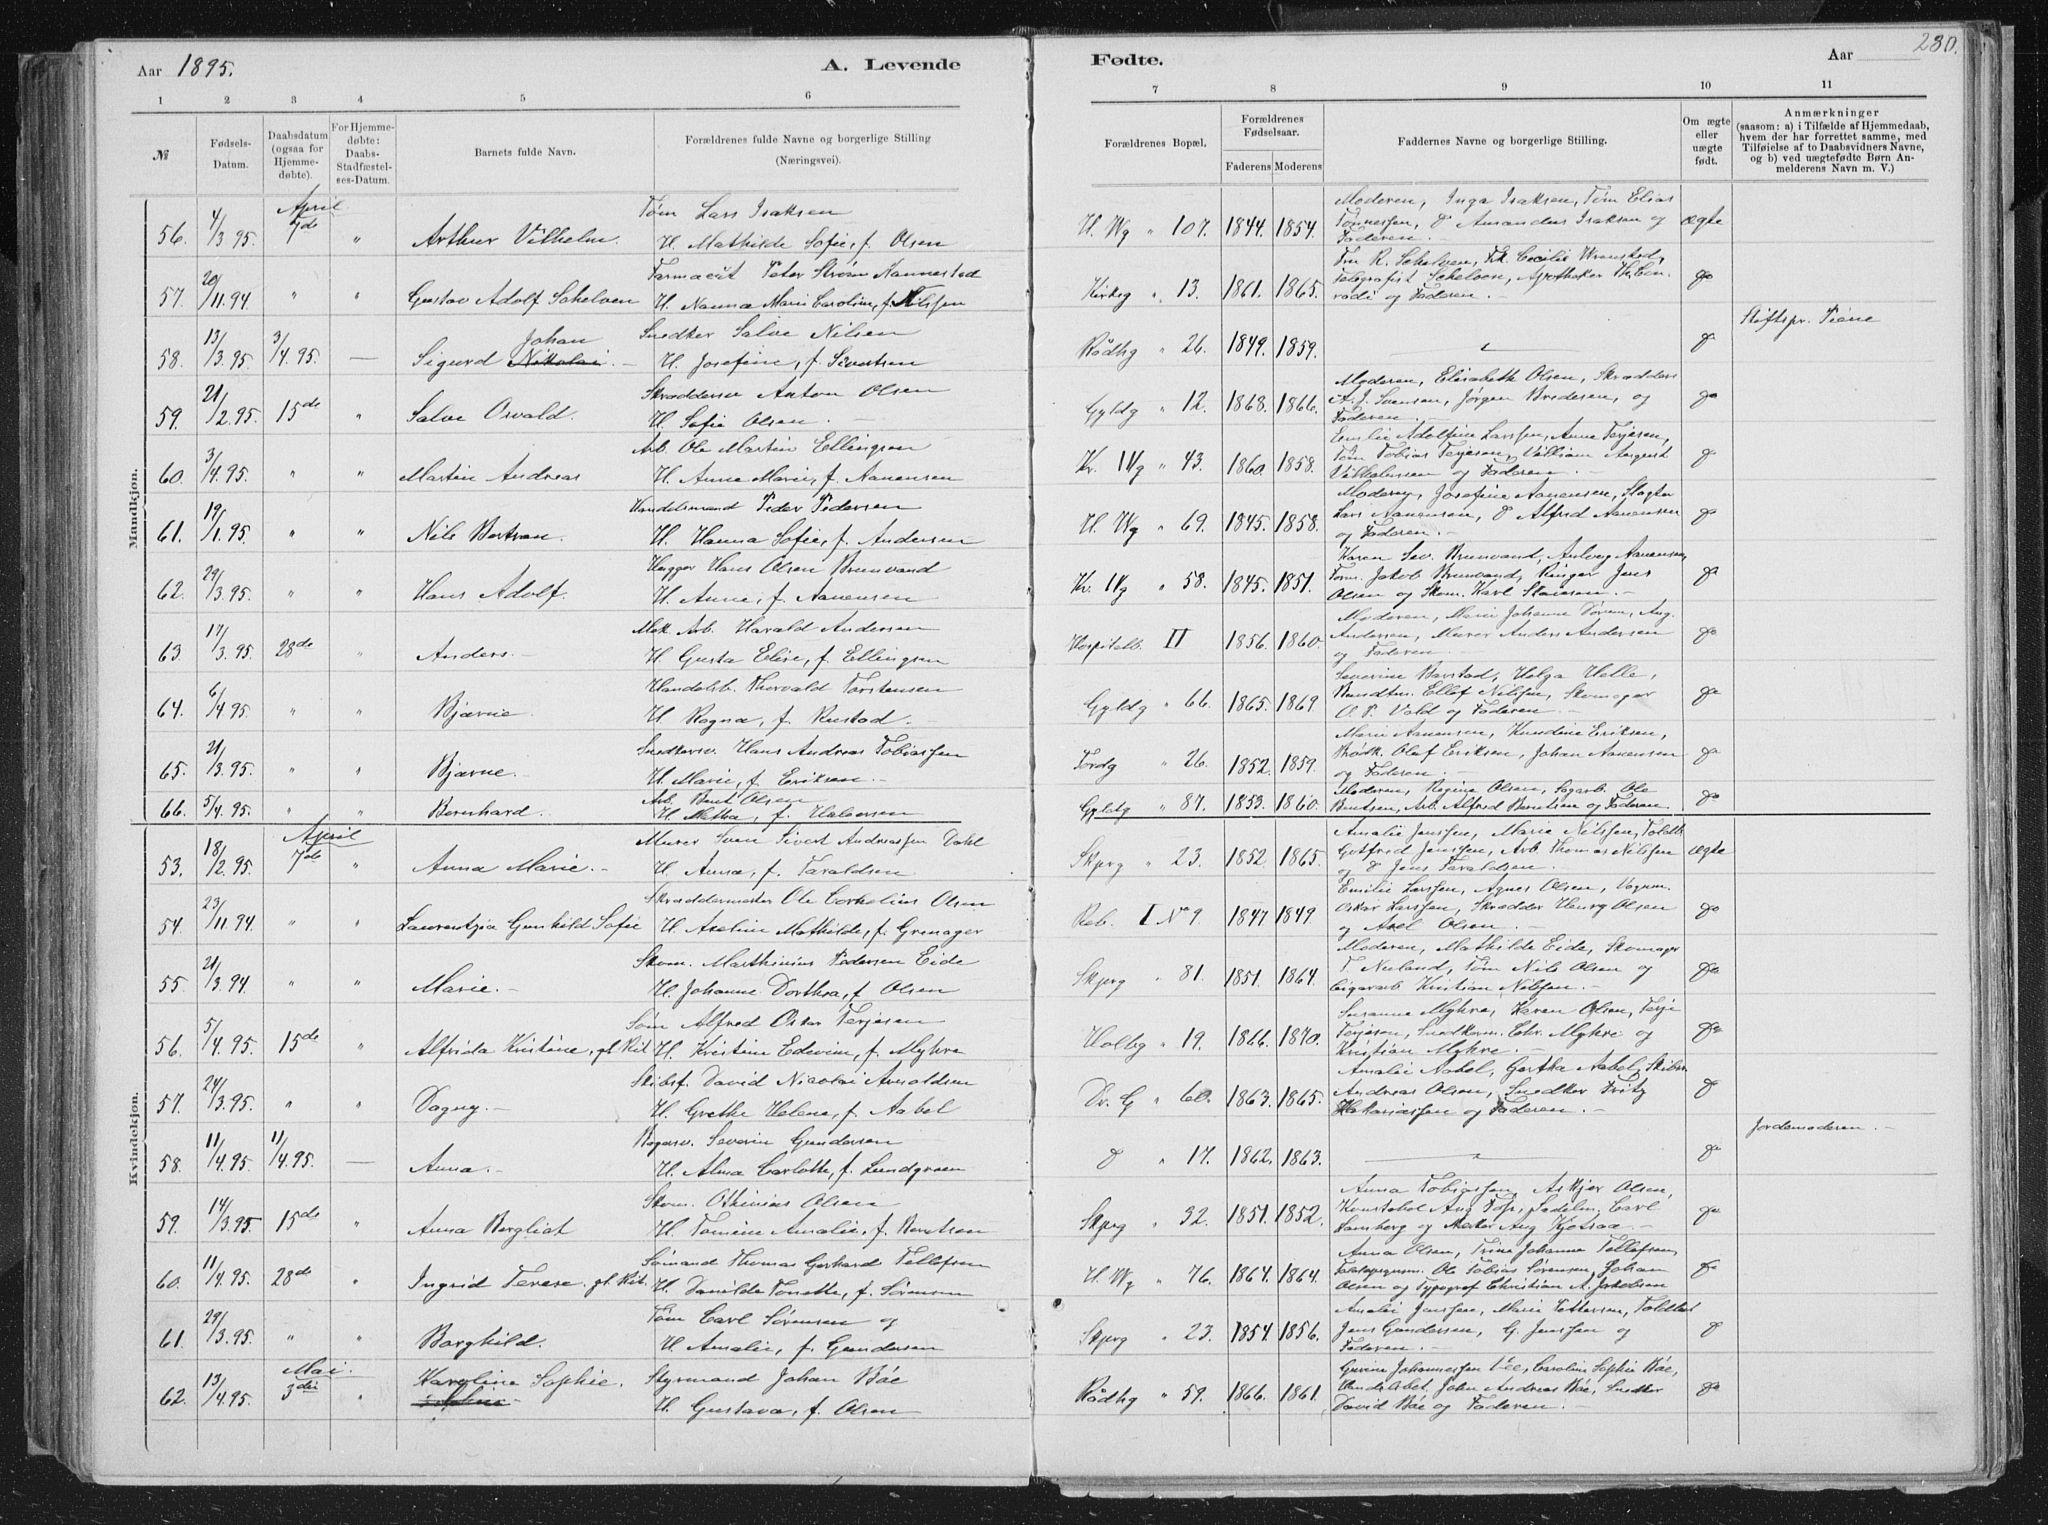 Aar 1895.
A. Levende
Fødte.
Aar
280.
1 2 3 4 5 6 7 8 9 10 11
№
Fødsels-
Datum.
Daabsdatum
(ogsaa for
Hjemme-
døbte).
For Hjemme-
døbte:
Daabs-
Stadfæstel-
ses-Datum.
Barnets fulde Navn.
Forældrenes fulde Navne og borgerlige Stilling
(Næringsvei).
Forældrenes Bopæl.
Forældrenes
Fødselsaar.
Faderens Moderens
Faddernes Navne og borgerlige Stilling.
Om ægte
eller
uægte
født.
Anmærkninger
(saasom: a) i Tilfælde af Hjemmedaab,
hvem der har forrettet samme, med
Tilføielse af to Daabsvidners Navne,
og b) ved uægtefødte Børn An-
melderens Navn m. V.)
Mandkjøn.
April
56. 4/3 95. 7de " Arthur Vilhelm.
Tøm Lars Isaksen
H. Mathilde Sofie, f. Olsen
H. Wg " 107. 1844. 1854.
Moderen, Inga Isaksen, Tøm Elias
Tønnessen, do Amandus Isaksen og
Faderen. -
ægte
57. 20/11.94. " " Gustav Adolf Schelven
Farmaceut Peter Strøm Hannestad
H. Nanna Marie Caroline, f. Nilssen
Kirkeg " 13. 1861. 1865.
Fru R. Schelven, Frk Cecilie
Telegrafist Schelven, Apotheker Th.
og Faderen. -
do
58. 13/3.95. 3/4.95. — Sigurd Nikolai. -
Johan
Snedker Salve Nilsen
H. Josefine, f. Sivertsen
Rådhg " 26. 1849. 1859.
do
Stiftspr.
59. 21/2.95. 15de " Salve Osvald.
Skræddersv Anton Olsen
H. Sofie Olsen.
Gyldg " 12. 1868. 1866.
Moderen, Elisabeth Olsen, Skrædders
A. J. Svensen, Jørgen Bredesen, og
Faderen. -
do
60. 3/4.95. " " Martin Andreas
Arb. Ole Martin Ellingsen
H. Anne Marie, f. Aanensen
Kr. IVg " 43. 1860. 1858.
Emilie Adolfine Larssen, Anne Terjesen,
Tøm Tobias Terjesen, Villiam August
Vilhelmsen og Faderen. -
do
61. 19/1.95. " " Nils Bertran.
Handelsmand Peder Pedersen
H. Hanna Sofie, f. Andersen
H. Wg " 69. 1845. 1858.
Moderen, Josefine Aanensen, Slagter
Lars Aanensen, do Alfred Aanensen
og Faderen. -
do
62. 29/3.95. " " Hans Adolf.
Hugger Hans Olsen Brunvand
H. Anne, f. Aanensen
Kr. IVg " 58. 1845. 1851.
Karen Sev. Brunvand, Aanensen,
Tøm. Jakob Brunvand, Ringer Jens
Olsen og Skom. Karl
do
63. 17/3.95. 28de " Anders. -
Mek. Arb. Harald Andersen
H. Gusta Elise, f. Ellingsen
Hospitalb. II 1856. 1860.
Moderen, Marie Johanne Aug.
Andersen, Murer Anders Andersen
og Faderen. -
do
64. 6/4 95. " " Bjarne.
Handelsb. Thorvald Torstensen
H. Ragna, f. Rustad. -
Gyldg " 66. 1865. 1869
Severine Barstad, Helga Helle,
Bundtm. Ellef Nilssen, Skomager
O. P. Vold og Faderen. -
do
65. 21/3.95. " " Bjarne. -
Snedkersv. Hans Andreas Tobiassen
H. Marie, f. Eriksen. -
Tordg " 26. 1852. 1859.
Marie Aanensen, Kundine Eriksen,
Olaf Eriksen, Johan Aanensen
og Faderen. -
do
66. 5/4.95. " " Bernhard.
Arb. Bent Olsen
H. Mettea, f. Halvorsen
Gyldg " 87. 1853. 1860.
Moderen, Regine Olsen, Sagarb. Ole
Bentsen, Arb. Alfred Bentsen og Faderen
do
Kvindekjøn.
April
53. 18/2.95. 7de " Anna Marie. -
Murer Sven Sivert Andreassen Dahl
H. Anna, f. Taraldsen
Skprg " 23. 1852. 1865.
Amalie Jenssen, Marie Nilssen, Toldb.
Gotfred Jenssen, Arb. Thomas Nilssen
og do Jens Taraldsen. -
ægte
54. 23/11.94. " " Laurentzia Gunhild Sofie
Skræddermester Ole Cornelius Olsen
H. Axeline Mathilde, f. Grenager
Reb. I No 9. 1847 1849.
Emilie Larssen, Agnes Olsen, Vognm.
Oskar Larssen, Skrædder Henry Olsen
og Axel Olsen. -
do
55. 21/3.94. " " Marie. -
Skom. Marthinius Pedersen Eide
H. Johanne Dorthea, f Olsen
Skprg " 81. 1851. 1864.
Moderen, Mathilde Eide, Skomager
T. Neeland, Tøm Nils Olsen og
Cigararb Kristian Nilssen. -
do
56. 5/4.95. 15de " Alfrida Kristine, gl. Rit.
Søm Alfred Oskar Terjesen
H. Kristine Edevine, f. Myhre
Holbg " 19. 1866. 1870.
Susanne Myhre, Karen Olsen, Terje
Terjesen, Snedkerm. Chr. Myhre og
Kristian Myhre. -
do
57. 24/3.95. " " Dagny. -
Skibsf. David Nicolai Arnoldsen
H. Grethe Helene, f. Aabel
Dr. G " 60. 1863. 1865.
Amalie Aabel, Gertha Aabel, Skibsr.
Andreas Olsen, Snedker Fritz
Zakariassen og Faderen. -
do
58. 11/4.95. 11/4.95. — Anna. -
Bagersv. Severin Gundersen
H. Alma Carlotte, f. Lundgreen
do " 17. 1862. 1863.
do
Jordemoderen. -
59. 14/3.95. 15de " Anna Bergliot
Skom. Othinius Olsen
H. Tomine Amalie, f. Berntsen
Skprg " 32. 1851. 1852.
Anna Tobiassen, Askjer Olsen,
Konstabel Aug. Carl
og Aug Kjetsaa. -
do
60. 11/4.95. 28de " Ingrid Terese. gl. Rit.
Sømand Thomas Gerhard Tellefsen
H. Danilde Tonette, f. Sørensen
H. Wg " 76. 1864. 1864.
Anna Olsen, Trine Johanne Tellefsen,
Ole Tobias Sørensen, Johan
Olsen og Typograf Christian A. Jakobsen
do
61. 29/3.95. " " Borghild.
Tøm Carl Sørensen og
H Amalie, f. Gundersen
Skprg " 23. 1854. 1856.
Amalie Jenssen, Marie Pettersen, Toldbet
Jens Gundersen, G. Jenssen og
Faderen. -
do
Mai.
62. 13/4.95. 3die " Karoline Sophie.
Styrmand Johan Bôe
H. Gustava, f. Olsen
Rådhg " 59. 1866. 1861.
Gurine Johannessen Caroline Sophie Bôe,
Handelsbet. John Andreas Bôe, Snedker
David Bôe og Faderen. -
do